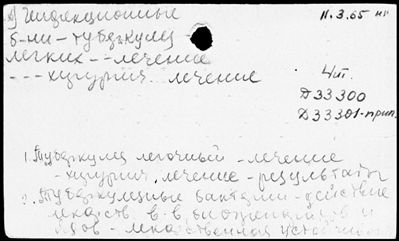 Инфекционные
б-ни - туберкулез -
легких - - лечение
- - - хирургич. лечение
11.3.65
Чит.
Д33300
Д33301-прил.
1. Туберкулез легочный - лечение
- хирург. лечение - результаты
2. Туберкулезные бактерии - действие
лекарств в-в
- лекарственная устойчив